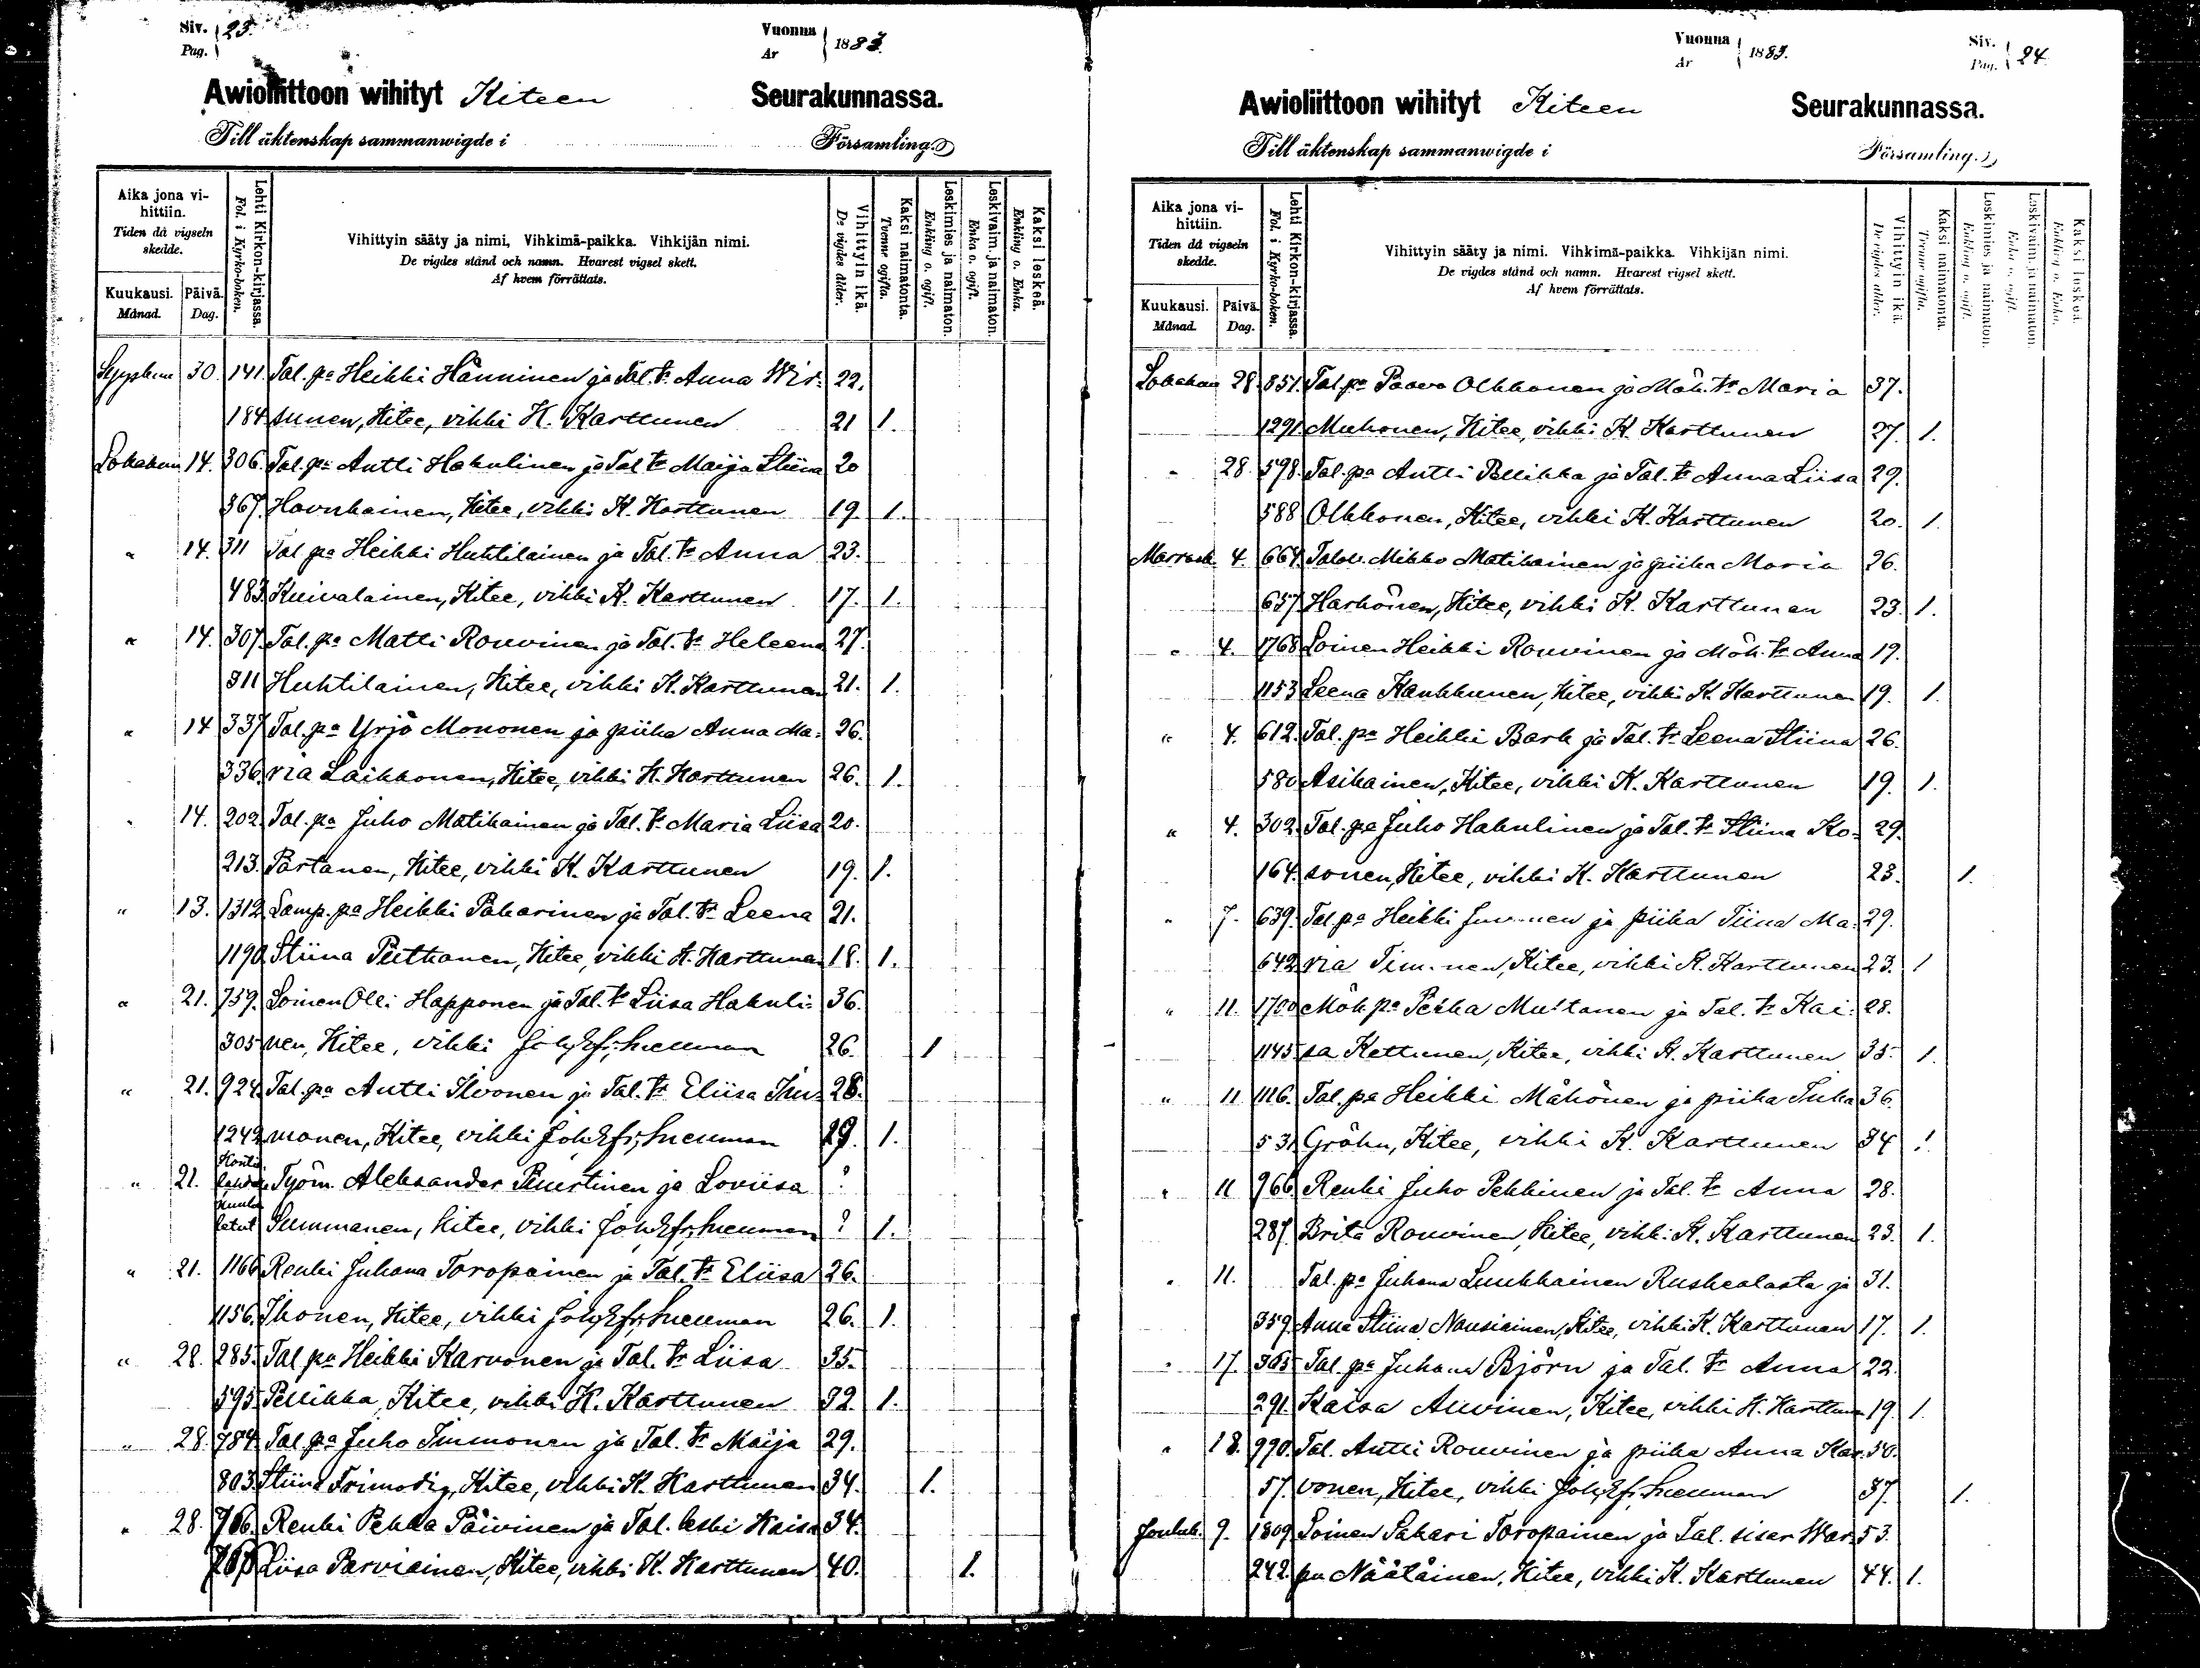 Siv. 23.
Pag.
Vuonna 1883.
Ar
Awioliittoon wihityt Kiteen Seurakunnassa.
Till äktenskap sammanwigde i Församling.
Aika jona vihittiin.
Tiden då vigseln skedde.
Kuukausi. Månad.
Päivä. Dag.
Lehti Kirkon-kirjassa. Fol. i Kyrko-boken.
Vihittyin sääty ja nimi, Vihkimä-paikka. Vihkijän nimi.
De vigdes stånd och namn. Hvarest vigsel skett.
Af hvem förrättats.
Vihittyin ikä. De vigdes ålder.
Kaksi naimatonta. Tvenne ogifta.
Leskimies ja naimaton. Enkling o. ogift.
Leskivaim. ja naimaton. Enka o. ogift.
Kaksi leskeä. Enkling o. Enka.
30. 141. Tal. pa Heikki Hänninen ja Tal. tr Anna Wir- 22.
184 sunen, Kitee, vihki K. Karttunen 21 1.
Lokakuu 14. 306. Tal. pa Antti Hakulinen ja Tal tr Maija Stiina 20
367. Hovukainen, Kitee, vihki K. Karttunen 19. 1.
" 14. 311 Tal pa Heikki Huhtilainen ja Tal. tr Anna 23.
483. Kuivalainen, Kitee, vihki K. Karttunen 17. 1.
" 14. 307. Tal. pa Matti Rouvinen ja Tal. tr Heleena 27.
311 Huhtilainen, Kitee, vihki K. Karttunen 21. 1.
" 14 337 Tal. pa Yrjö Mononen ja piika Anna Ma- 26.
336. ria Laikkonen, Kitee, vihki K. Karttunen 26. 1.
" 14. 202. Tal. pa Juho Matikainen ja Tal. tr Maria Liisa 20.
213. Partanen, Kitee, vihki K. Karttunen 19. 1.
" 13. 1312 Lamp. pa Heikki Pakarinen ja Tal. tr Leena 21.
1190 Stiina Puttonen, Kitee, vihki K. Karttunen 18. 1.
" 21. 759. Loinen Olli Happonen ja Tal. tr Liisa Hakuli- 36.
305 nen, Kitee, vihki Joh. Efr. Sneuman 26. 1
" 21. 924. Tal. pa Antti Ilvonen ja Tal. tr Eliisa Im- 28.
1242 monen, Kitee, vihki Joh. Efr. Sneuman 29. 1.
" 21. Kontiolahden Työm. Aleksander Puustinen ja Loviisa ?
kuulutetut Summanen, Kitee, vihki Joh. Efr. Sneuman ? 1.
" 21. 1166 Renki Juhana Toropainen ja Tal. tr Eliisa 26.
1156. Ihonen, Kitee, vihki Joh. Efr. Sneuman 26. 1.
" 28. 285. Tal pa Heikki Karvonen ja Tal. tr Liisa 35.
595. Pellikka, Kitee, vihki K. Karttunen 32. 1.
" 28. 784 Tal. pa Juho Immonen ja Tal. tr Maija 29.
803. Stiina Frimodig, Kitee, vihki K. Karttunen 34. 1.
" 28. 766. Renki Pekka Päivinen ja Tal. leski Kaisa 34.
Liisa Parviainen, Kitee, vihki K. Karttunen 40. 1.
Vuonna 1883.
Ar
Siv. 24.
Pag.
Awioliittoon wihityt Kiteen Seurakunnassa.
Till äktenskap sammanwigde i Församling.
Aika jona vihittiin.
Tiden då vigseln skedde.
Kuukausi. Månad.
Päivä. Dag.
Lehti Kirkon-kirjassa. Fol. i Kyrko-boken.
Vihittyin sääty ja nimi. Vihkimä-paikka. Vihkijän nimi.
De vigdes stånd och namn. Hvarest vigsel skett.
Af hvem förrättats.
Vihittyin ikä. De vigdes ålder.
Kaksi naimatonta. Tvenne ogifta.
Leskimies ja naimaton. Enkling o. ogift.
Leskivaim. ja naimaton. Enka o. ogift.
Kaksi leskeä. Enkling o. Enka.
Lokakuu 28. 851. Tal pa Paavo Olkkonen ja Mök. tr Maria 37.
1291 Muhonen, Kitee, vihki K. Karttunen 27. 1.
" 28. 598. Tal. pa Antti Pellikka ja Tal. tr Anna Liisa 29.
588 Olkkonen, Kitee, vihki K. Karttunen 20. 1.
Marrask. 4. 664. Talol. Mikko Matikainen ja piika Maria 26.
657 Harhonen, Kitee, vihki K. Karttunen 23. 1.
" 4. 1768 Loinen Heikki Rouvinen ja Mök. tr Anna 19.
1153 Leena Kaukkunen, Kitee, vihki K. Karttunen 19. 1.
" 4. 612. Tal. pa Heikki Bark ja Tal. tr Leena Stiina 26.
580 Asikainen, Kitee, vihki K. Karttunen 19. 1.
" 4. 302. Tal. pa Juho Hakulinen ja Tal. tr Stiina Ko- 29.
164. sonen, Kitee, vihki K. Karttunen 23. 1.
" 7. 639. Tal pa Heikki ja piika Tiina Ma- 29.
642 ria Timonen, Kitee, vihki K. Karttunen 23. 1
" 11. 1700 Mök. pa Pekka Mustanen ja Tal. tr Kai- 28.
1145 sa Kettunen, Kitee, vihki K. Karttunen 35. 1.
" 11 1116. Tal. pa Heikki Mähönen ja piika Inka 36.
531 Gröhn, Kitee, vihki K. Karttunen 34 1
" 11 966 Renki Juho Pekkinen ja Tal. tr Anna 28.
287. Brita Rouvinen, Kitee, vihki K. Karttunen 23. 1.
" 11. Tal. pa Juhana Luukkainen Ruskealasta ja 31.
359. Anna Stiina Nousiainen, Kitee, vihki K. Karttunen 17. 1.
" 17. 365 Tal. pa Juhana Björn ja Tal. tr Anna 22.
291. Kaisa Auvinen, Kitee, vihki K. Karttunen 19. 1.
" 18. 990. Tal. Antti Rouvinen ja piika Anna Kar- 50.
57. vonen, Kitee, vihki Joh. Efr. Sneuman 37. 1.
Jouluk. 9. 1809 Loinen Sakari Toropainen ja Tal. sisar War- 53.
242. pu Näätäinen, Kitee, vihki K. Karttunen 44. 1.